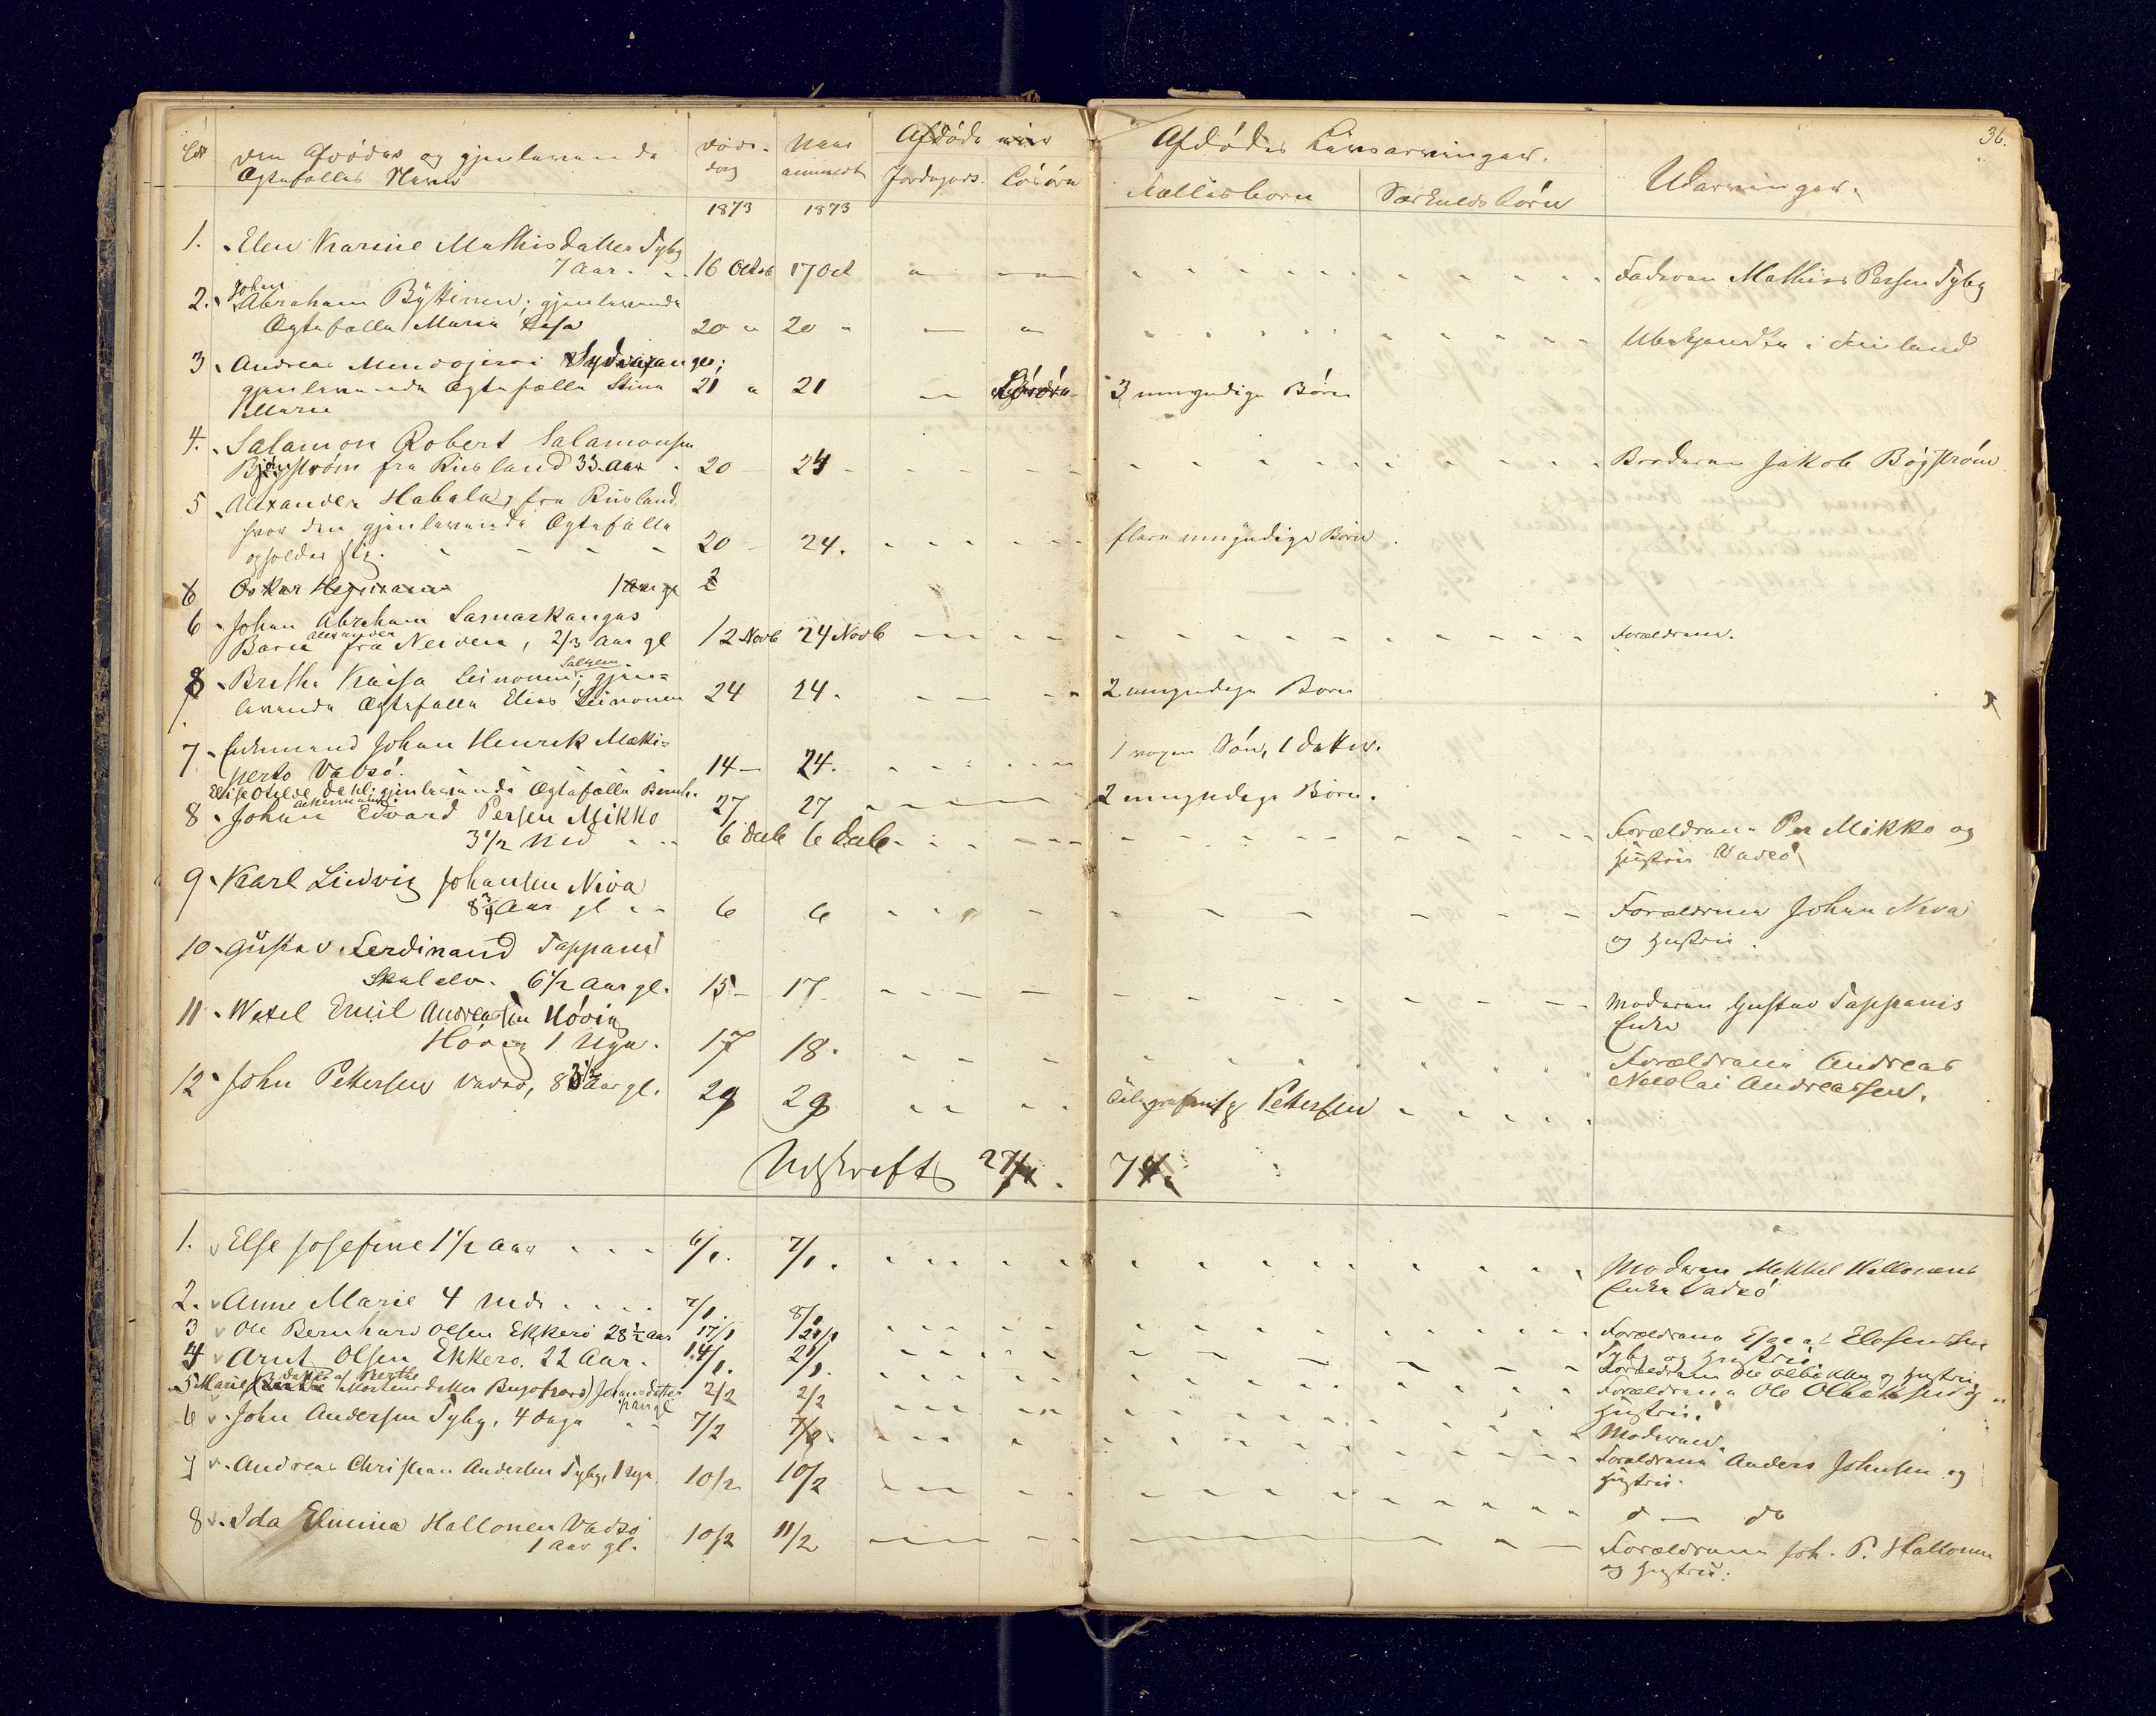 36.
Den Afdødes og gjenlevende
Ægtefælles Navn
Døds-
dag
Naar
anmeldt
Afdøde
Jordegods.
Løsøre
Afdødes Livsarvinger.
Fællesbørn
Særkuldsbørn
Udarvinger.
1873 1873
1. Elen Karine Mathisdatter Tyby
7 Aar. 16 Octob 17 Oct Faderen Mathis Persen Tyby
2. Johan
Abraham Byttinen; gjenlevende
Ægtefælle Maria Kaisa 20 " 20 " Ubekjendte i Finland
3 Andreas Sydvaranger;
gjenlevende Ægtefælle Stina 21 " 21 Løsøre 3 umyndige Børn
Marie
4. Salamon Robert Salamonsen
fra Rusland 33 Aar 20 - 24 - Broderen Jakob Bøjstrøm
5 Alexander Habala, fra Rusland,
hvor den gjenlevende Ægtefælle
opholder sig. 20 - 24. flere umyndige Børn
6 Oskar 1 Aar gl 2
6 Johan Abraham Sarnarkangas
Barn Alexander fra Neiden, 2/3 Aar gl 12 Novb 24 Novb Forældrene.
8 Bretha Kaisa Leinonen; gjen=
levende Ægtefælle Elias Leinonen 24 24. 2 umyndige Børn
7 Enkemand Johan Henrik Mæki=
perto Vadsø. 14 - 24. 1 voxen Søn, 1 Datter.
Elise Otilde Dahl; gjenlevende Ægtefælle Bernh.
Ackermann. 27 27 2 umyndige Børn.
8 Johan Edvard Persen Mikko
3 1/2 Md 6 Decb 6 Decb Forældrene Per Mikko og
Hustru Vadsø
9 Karl Ludvig Johansen Niva
8 3/4 Aar gl 6 6 Forældrene Johan Niva
og Hustru.
10 Gustav Ferdinand Tappani
Skalelv. 6 1/2 Aar gl. 15 - 17 Moderen Gustav Tappanis
Enke
11 Wexel Emil Andreassen Høvig
Høvig 1 Uge. 17 18. Forældrene Andreas
Nicolai Andreassen.
12 John Pettersen Vadsø, 8 3/4 Aar gl. 29 29 Pettersen
Udskrift 27/1. 74.
1. Else Josefine 1 1/2 Aar 6/1. 7/1. Moderen Mikkel Hallonens
Enke Vadsø
2. Anne Marie 4 Mdr 7/1. 8/1 Forældrene
Tyby og Hustru.
3 Ole Bernhard Olsen Ekkerø 28 1/2 Aar 17/1 21/1 Forældrene Ole Olbekken og Hustru
4 Arnt Olsen Ekkerø. 22 Aar. 14/1. 21/1. Forældrene Ole Olbekken og
Hustru.
5 Marie (datter af Berthe Mortensdatter Bugøfjord) Johansdatter 2/2 2/2 Moderen.
6 John Andersen Tyby, 4 Dage 7/2 7/2. Forældrene Anders Johnsen og
Hustru.
7 Andreas Christian Andersen Tyby, 1 Uge 10/2 10/2 d — do
8 Ida Elmina Hallonen Vadsø
1 Aar gl. 10/2 11/2 Forældrene Joh. P. Hallonen
og Hustru.